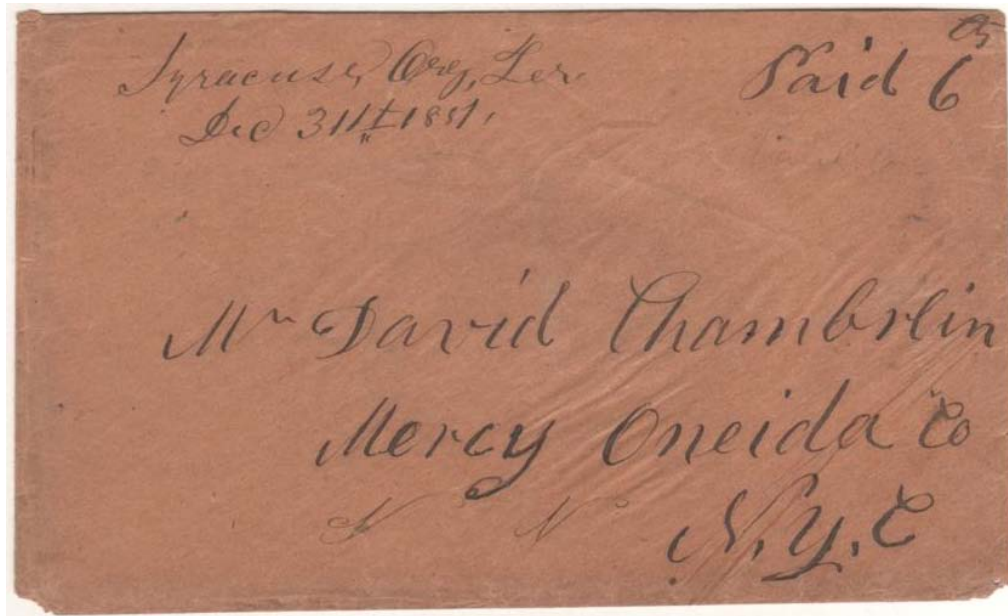 Syracuse, Oreg, Ter.
Dec 31st 1851.
Paid 6
Mr David Chamberlin
Mercy Oneida Co
N.Y.C
N N